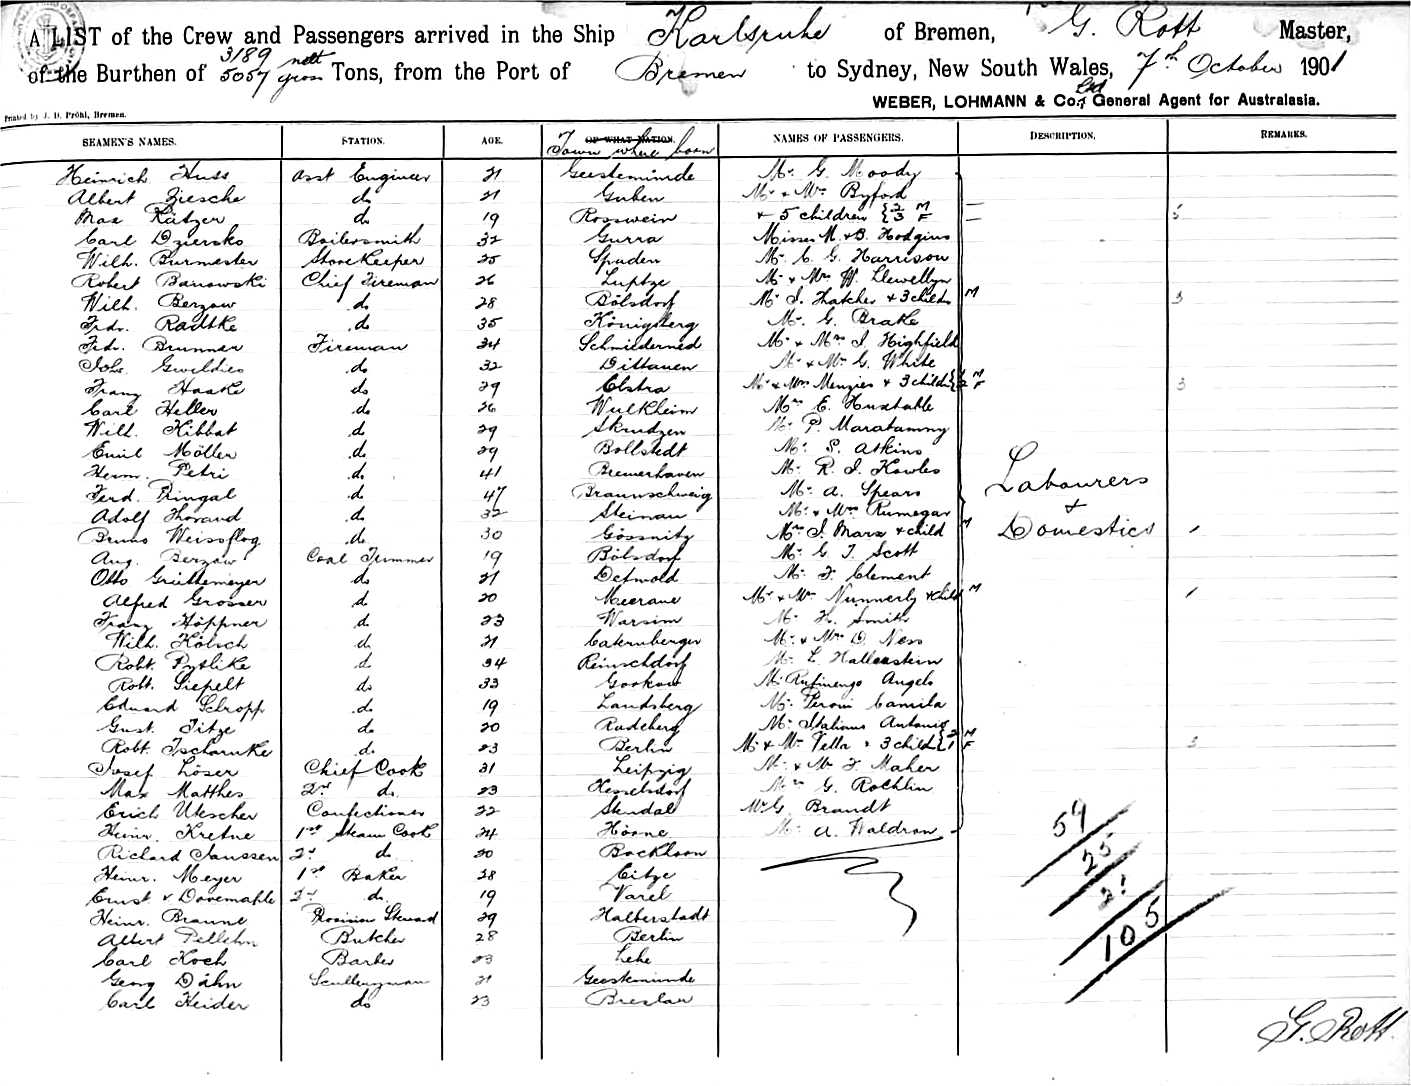 A LIST of the Crew and Passengers arrived in the Ship Karlsruhe of Bremen, G. Rott Master,
of the Burthen of 3189 nett 5057 gross Tons, from the Port of Bremen to Sydney, New South Wales, 7th October 1901
WEBER, LOHMANN & Co., Ltd General Agent for Australasia.
Printed by J. D. Pröhl, Bremen.
SEAMEN'S NAMES. STATION. AGE. OF WHAT NATION. Town where born NAMES OF PASSENGERS. DESCRIPTION. REMARKS.
Heinrich Huss Asst Engineer 21 Geestemünde Mr. G. Moody
Albert Ziesche do 21 Guben Mr. & Mrs Byford
Max Rätzer do 19 Rosswein & 5 children {2 M 3 F 5
Carl Dziersko Boilersmith 32 Gurra Misses M. & B. Hodgins
Wilh. Burmester Storekeeper 25 Spaden Mr. C. G. Harrison
Robert Banowski Chief Fireman 26 Luptze Mr. & Mrs W. Llewellyn
Wilh. Berzow do 28 Bölsdorf Mr. I. Thatcher & 3 childr M 3
Frdr. Radtke do 35 Königsberg Mr. G. Brake
Frdr. Brunner Fireman 34 Schmiederned Mr. & Mrs I. Highfield
Johs. Gwildies do 32 Dittauen Mr. & Mrs G. White
Franz Haske do 29 Elstra Mr. & Mrs Menzies & 3 child {1 M 2 F 3
Carl Heller do 26 Wulkheim Mrs E. Huxtable
Wilh. Kibbat do 29 Skrudzen Mr. P. Maratammy
Emil Möller do 29 Bollstedt Mr. S. Atkins
Herm. Petri do 41 Bremerhaven Mr. R. I. Howles
Ferd. Ringal do 47 Braunschweig Mr. A. Spears
Adolf Thorand do 32 Steinau Mr. & Mrs Rumegar
Labourers & Domestics
Bruno Weissflog do 30 Gössnitz Mrs I. Marx & child M 1
Aug. Berzow Coal Trimmer 19 Bölsdorf Mr. G. T. Scott
Otto Grüttemeyer do 21 Detmold Mr. F. Clement
Alfred Grosser do 20 Meerane Mr. & Mrs Nunnerly & child M 1
Franz Höppner do 23 Warsim Mr. H. Smith
Wilh. Hölsch do 21 Caternberger Mr. & Mrs D. Ness
Robt. Pytlike do 34 Reinschdorf Mr. L. Hallenstein
Robt. Siepelt do 33 Gorkau Mr. Rufinengo Angelo
Eduard Schropp do 19 Landsberg Mr. Peroni Camila
Gust. Titze do 20 Radeberg Mr. Stalions Antonio
Robt. Tscharnke do 23 Berlin Mr. & Mrs Vella & 3 child {2 M 1 F 3
Josef Löser Chief Cook 31 Leipzig Mr. & Mrs F. Maher
Max Matthes 2nd do 23 Hesselsdorf Mrs G. Rochlin
Erich Utescher Confectioner 22 Stendal Mr G. Brandt
Heinr. Kretne 1st Steam Cook 24 Hörne Mr. A. Waldron
Richard Janssen 2d do 20 Bockhorn
Heinr. Meyer 1st Baker 28 Citze
Ernst v Dovemahle 2d do. 19 Varel
Heinr. Braune Provision Steward 29 Halberstadt
Albert Pellehn Butcher 28 Berlin
Carl Koch Barber 23 Lehe
Georg Dähn Sculleryman 21 Geestemünde
Carl Heider do 23 Breslau
59
25
21
105
G. Rott